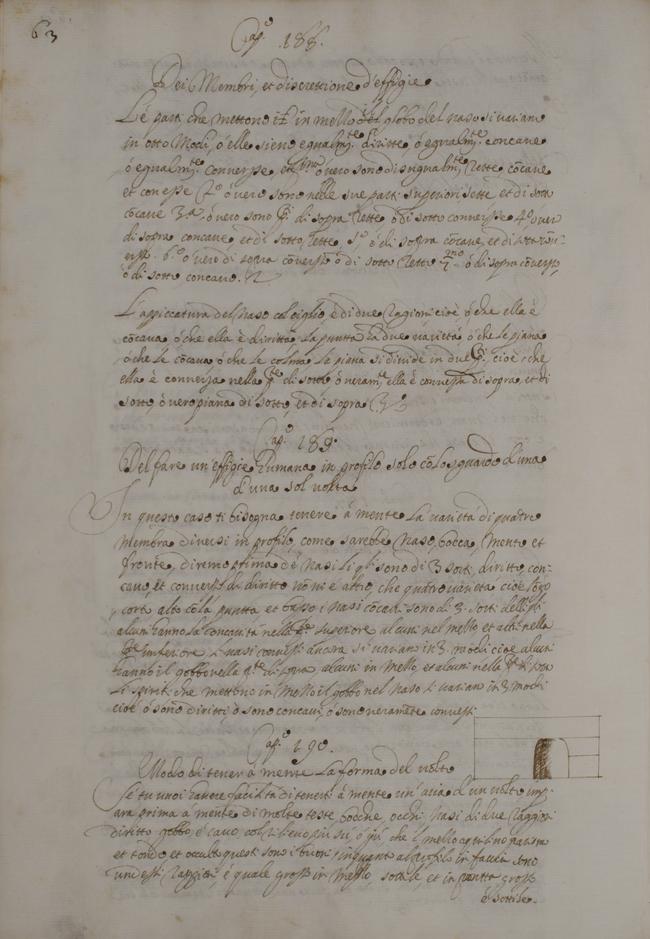 63
Cap.º 188.
Dei Membri, et discrettione d'effigie
Le parti che mettono in mezzo il globo del naso si variano
in otto Modi, ò elle sieno egualm.te diritte ò egualm.te concave
ò egualm.te convesse, ò vero sono disugualm.te rette cōcave
et convesse 2.º ò vero sono nelle sue parti superiori rette et di sotto
cōcave 3.ª, ò vero sono di sopra rette et di sotto convesse 4.º ò ver
di sopra concave, et di sotto rette, 5.º ò di sopra cōcave, et di sotto con-
vesse. 6.º ò vero di sopra cōvesse ò di sotto rette 7 ò di sopra cōvesse,
ò di sotto concave.
L'appiccatura del naso col ciglio è di due ragioni cioè ò che ella è
cōcava ò che ella è diritta La fronte ha tre varietà ò che le piana
ò che le cōcava ò che le colma La piana si divide in due p.ti cioè che
ella è convessa nella p.te di sotto ò veram.te ella è convessa di sopra, et di
sotto, ò vero piana di sotto, et di sopra
Cap.º 189.
Del fare un'effigie humana in profilo solo cō lo sguardo d'una
d'una sol volta
In questo caso ti bisogna tenere à mente La varietà di quatro
membra diversi in profilo, come sarebbe Naso, bocca, Mento et
fronte, diremo prima de Nasi Li q.li sono di 3 sorti, diritto, con-
cavo, et convesso di diritto non vi è altro, che quatro varietà cioè lōgo
corto alto cō la puntta et basso i nasi cōcavi sono di 3. sorti delli q.li
alcuni hanno la concavità nella p.te superiore alcuni nel mezzo et altri nella
p.te inferiore Li nasi convessi ancora si variano in 3. modi cioè alcuni
hanno il gobbo nella p.te di sopra alcuni in mezzo, et alcuni nella p.te di sotto
Li sporti che mettono in Mezzo il gobbo nel Naso si variano in 3. modi
cioè ò sono diritti ò sono concavi, ò sono veramēte convessi
Cap.º 190.
Modo di tener à mente La forma del volto
Se tu vuoi havere facilità di tenerti à mente un'aria d'un volto imp-
ara prima à mente di molte teste, bocche, occhi Nasi
diritto gobbo, è cavo
et tondo, et occulti questi sono i buoni inquanto al profilo in faccia sono
undeci ragioni, è quale grosso in Mezzo, sottile, et in puntta grosso
è sottile.